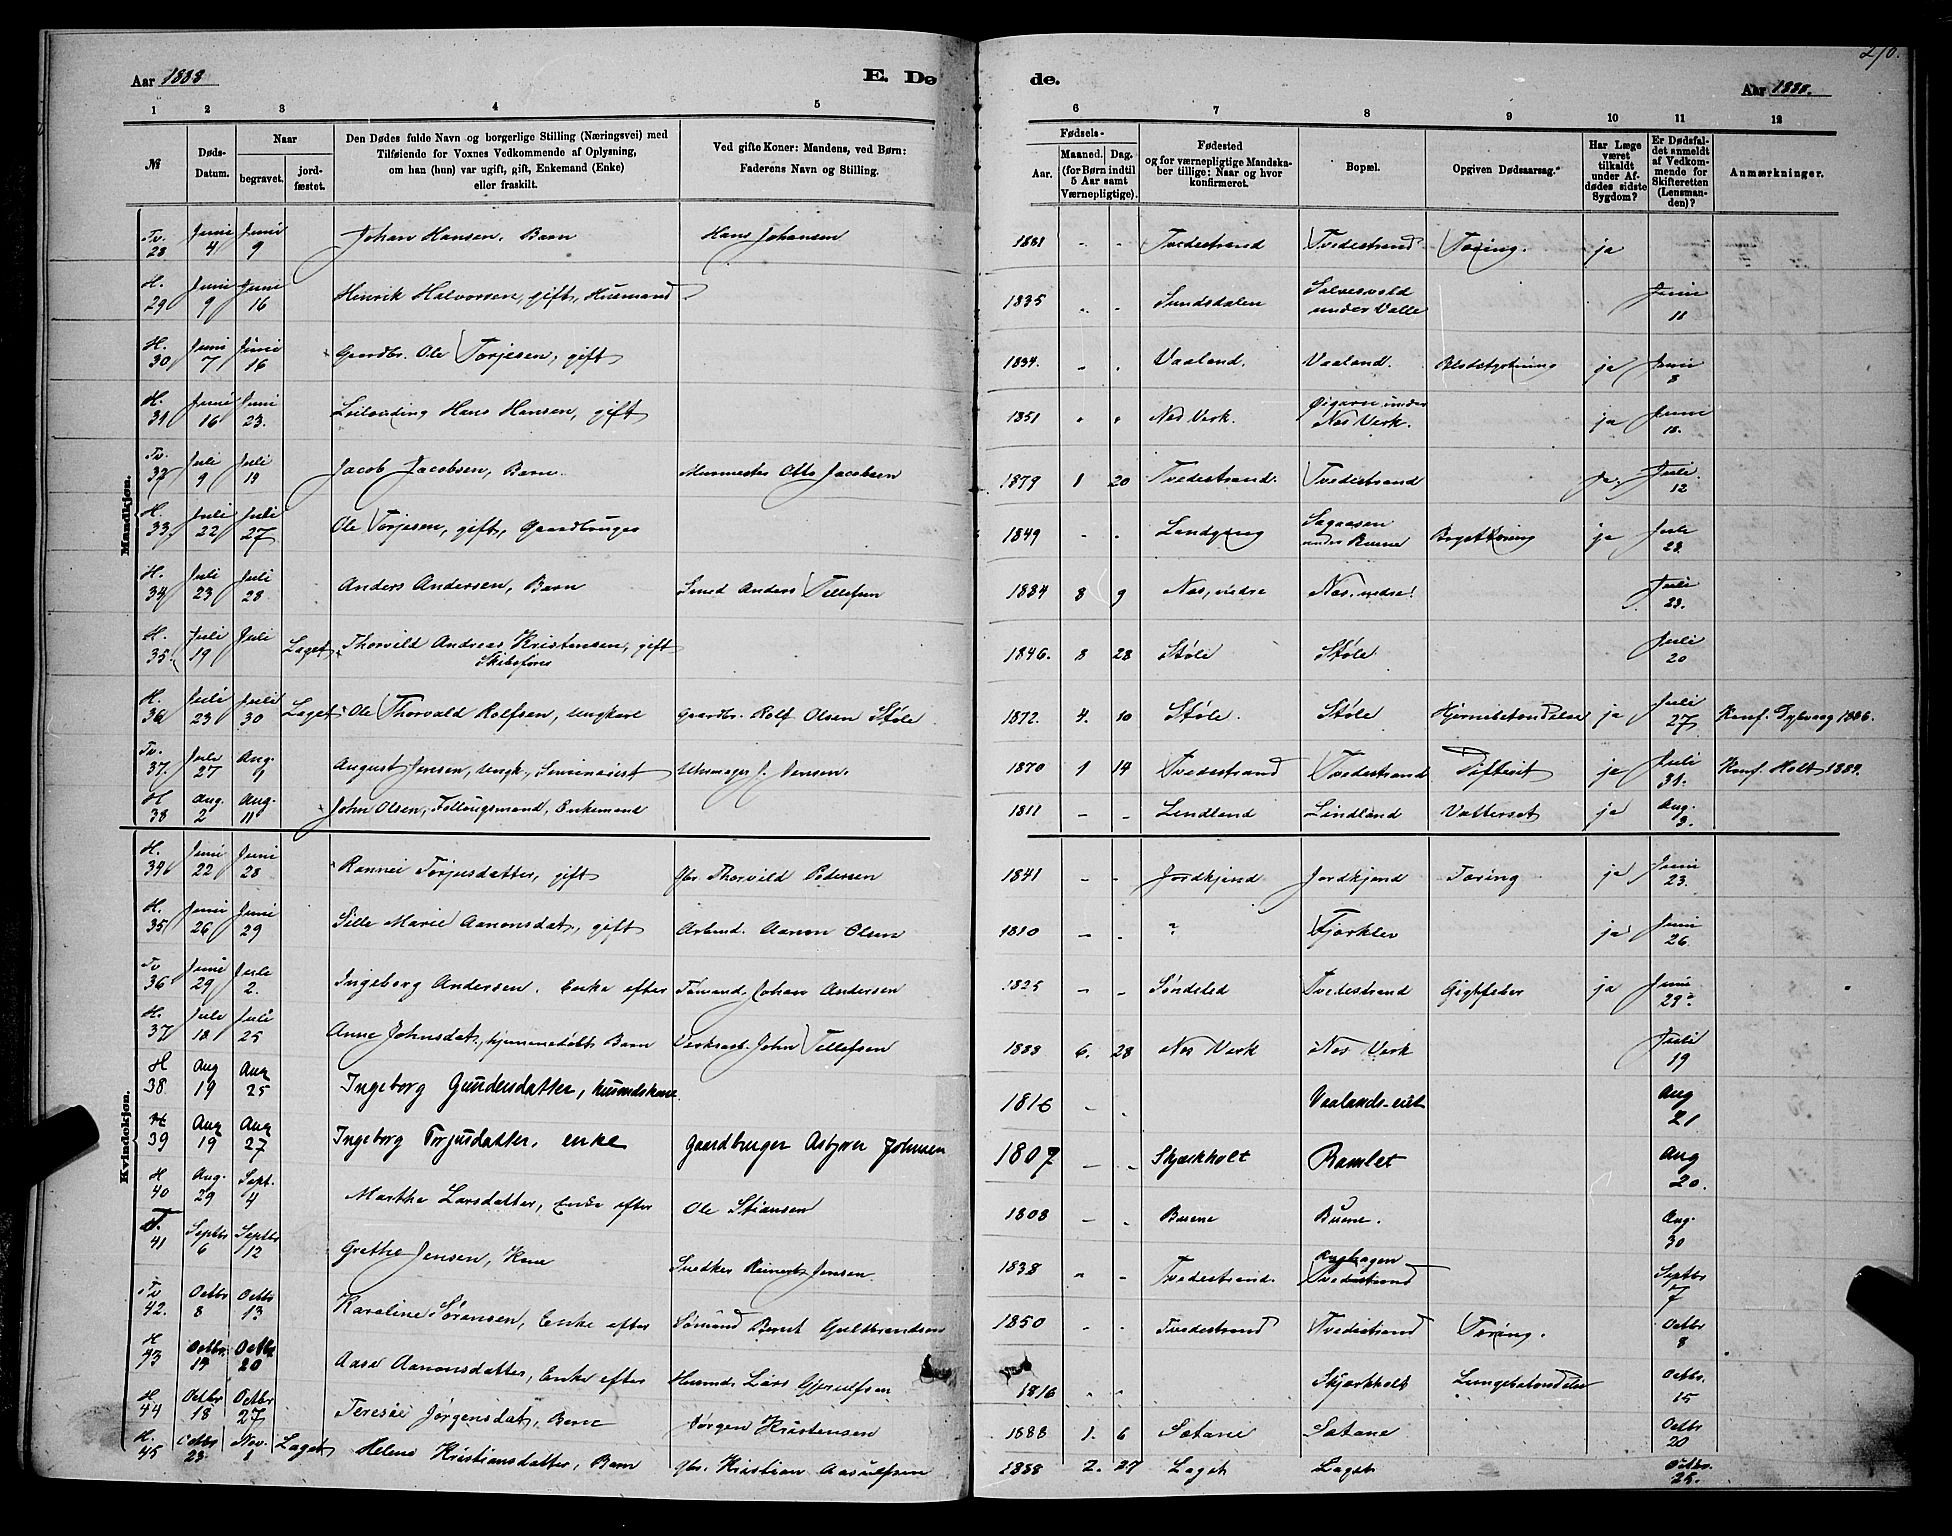 270.
Aar 1888 E. Dø de. Aar 1888.
1 2 3 4 5 6 7 8 9 10 11 12
№ Døds-Datum. Naar begravet. jord-fæstet. Den Dødes fulde Navn og borgerlige Stilling (Næringsvei) med Tilføiende for Voxnes Vedkommende af Oplysning, om han (hun) var ugift, gift, Enkemand (Enke) eller fraskilt. Ved gifte Koner: Mandens, ved Børn: Faderens Navn og Stilling. Fødsels- Aar. Maaned. Dag. (for Børn indtil 5 Aar samt Værnepligtige). Fødested og for værnepligtige Mandskaber tillige: Naar og hvor konfirmeret. Bopæl. Opgiven Dødsaarsag.* Har Læge været tilkaldt under Afdødes sidste Sygdom? Er Dødsfaldet anmeldt af Vedkommende for Skifteretten (Lensmanden)? Anmærkninger.
Mandkjøn.
Tv. 28 Juni 4 Juni 9 Johan Hansen, Barn Hans Johansen 1881 - - Tvedestrand Tvedestrand Tæring. ja
H. 29 Juni 9 Juni 16 Henrik Halvorsen, gift, Husmand 1835 - - Sundsdalen Salvesvold under Valle Juni 11
H. 30 Juni 7 Juni 16 Gaardbr. Ole Torjesen, gift 1834. - - Vaaland. Vaaland. Blodstyrtning ja Juni 8
H. 31 Juni 16 Juni 23. Leilending Hans Hansen, gift 1851 " " Nes Verk. under Nes Verk. ja Juni 18.
Tv. 32 Juli 9 Juli 19 Jacob Jacobsen, Barn. Murmester Otto Jacobsen 1879 1 20 Tvedestrand. Tvedestrand ja. Juli 12
H. 33. Juli 22 Juli 27 Ole Torjesen, gift, Gaardbruger 1849 - - Landgang Sagaasen under Buene Brysttæring ja Juli 23.
H. 34 Juli 23 Juli 28 Anders Andersen, Barn Smed Anders Tellefsen 1884 8 9 Nes, nedre Nes, nedre Juli 23.
H. 35. Juli 19 Juli Laget Thorvild Andreas Kristensen, gift Skibsfører 1846. 8 28 Støle Støle Juli 20
H. 36 Juli 23 Juli 30 Laget Ole Thorvald Rolfsen, Ungkarl Gaardbr. Rolf Olsen Støle 1872. 4. 10 Støle. Støle ja Juli 27 Konf. Dybvaag 1886.
Tv. 37. Juli 27 Aug. 1 August Jensen, Ungk., Seminarist Uhrmager J. Jensen. 1870 1 14 Tvedestrand Tvedestrand Difterit ja Juli 31. Konf. Holt 1884.
H 38 Aug. 2 Aug. 11 John Olsen, Føllaugsmand, Enkemand 1811 - - Lindland Lindland Vattersot ja Aug. 3.
Kvindekjøn.
H. 34 Juni 22 Juni 28 Rannei Torjusdatter, gift Gbr Thorvild Pedersen 1841 - - Jordkjend Jordkjend Tæring ja Juni 23.
H. 35 Juni 26 Juni 29 Sille Marie Aanonsdat., gift Arbmd. Aanon Olsen 1810 - - ? Fjærklev ja Juni 26
Tv 36 Juni 29 Juli 2. Ingeborg Andersen, Enke efter Tømmand. Johan Andersen 1825 - - Søndeled Tvedestrand Gigtfeber ja Juni 29
H. 37 Juli 18 Juli 25 Anne Johnsdat., hjemmedøbt Barn Verksarb. John Tellefsen 1888 6. 28 Nes Verk Nes Verk Juli 19
H 38 Aug 19 Aug 25 Ingeborg Gundersdatter, husmdskone 1816 - - Vaalands-eiet Aug 21
H 39 Aug 19 Aug 27 Ingeborg Torjusdatter, enke Gaardbruger Asbjørn Johnsen 1807 - - Skjerkholt Ramlet Aug 20.
H 40 Aug. 29 Sept. 4 Marthe Larsdatter, Enke efter Ole Stiansen 1808 - - Buene Buene. Aug. 30
T. 41 Septb 6 Septbr 12 Grethe Jensen, Kone Snedker Reinert Jensen. 1838 " - Tvedestrand. Tvedestrand Septbr 7
Tv 42. Octb 8 Octbr 13 Karoline Sørensen, Enke efter Sømand Bernt Guldbrandsen 1850 - - Tvedestrand Tvedestrand Tæring. Octbr 8
H 43 Octbr 14 Octbr 20 Aase Aanonsdatter, Enke efter Husmd. Lars Gjerulfsen 1816 " " Skjerkholt Lungebetændelse Octbr. 15
H 44 Octbr 18 Octbr 27 Terese Jørgensdat., Barn Jørgen Kristensen 1888 1. 6 Sætane Sætane Octbr 20
H. 45 Octbr 23 Nov. 1 Laget Helene Kristiansdatter, Barn Gbr. Kristian Aasulfsen 1888 2. 29 Laget Laget Octbr. 25.